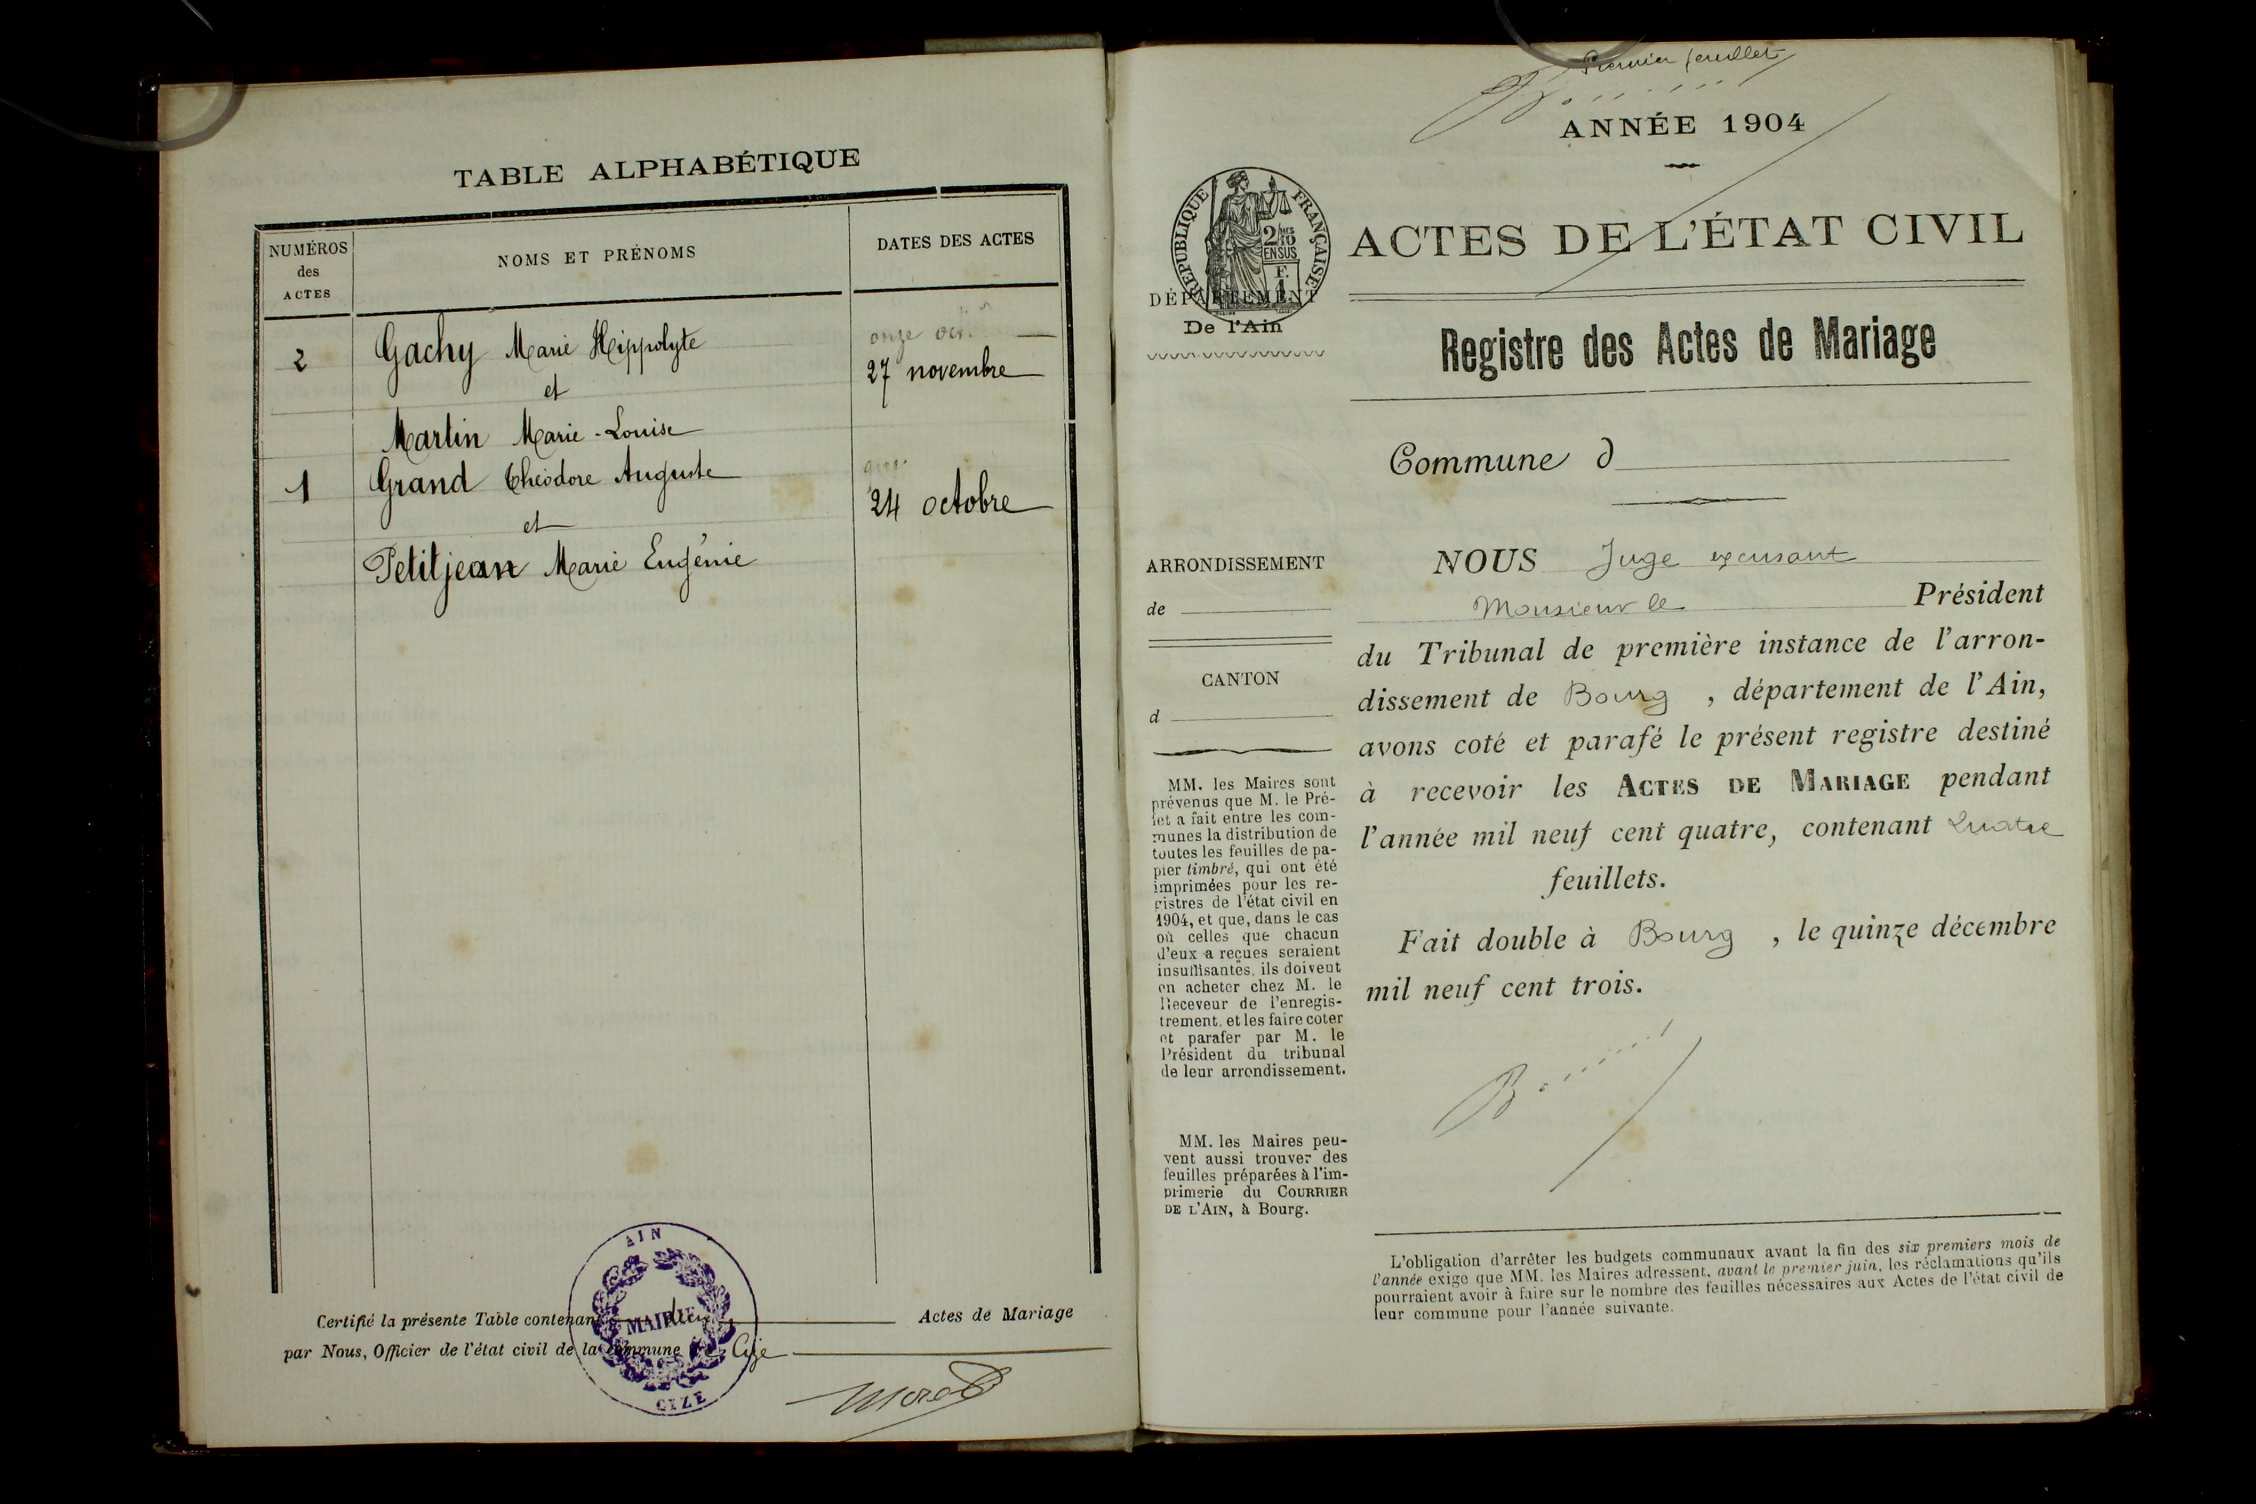 TABLE ALPHABÉTIQUE
NUMÉROS
des
ACTES
NOMS ET PRÉNOMS
DATES DES ACTES
2
Gachy Marie Hippolyte
onze oct.
27 novembre
et
Martin Marie-Louise
1
Grand Théodore Auguste
24 octobre
et
Petitjean Marie Eugénie
Certifié la présente Table contenant deux Actes de Mariage
par Nous, Officier de l'état civil de la commune de Cize
AIN
MAIRIE
CIZE
Morel
Premier feuillet
ANNÉE 1904
RÉPUBLIQUE FRANÇAISE
2/10
EN SUS
F.
1
ACTES DE L'ÉTAT CIVIL
DÉPARTEMENT
De l'Ain
Registre des Actes de Mariage
Commune d
ARRONDISSEMENT
de
CANTON
d
MM. les Maires sont
prévenus que M. le Pré-
fet a fait entre les com-
munes la distribution de
toutes les feuilles de pa-
pier timbré, qui ont été
imprimées pour les re-
gistres de l'état civil en
1904, et que, dans le cas
où celles que chacun
d'eux a reçues seraient
insuffisantes, ils doivent
en acheter chez M. le
Receveur de l'enregis-
trement, et les faire coter
et parafer par M. le
Président du tribunal
de leur arrondissement.
MM. les Maires peu-
vent aussi trouver des
feuilles préparées à l'im-
primerie du COURRIER
DE L'AIN, à Bourg.
NOUS Juge excusant
Monsieur le Président
du Tribunal de première instance de l'arron-
dissement de Bourg , département de l'Ain,
avons coté et parafé le présent registre destiné
à recevoir les ACTES DE MARIAGE pendant
l'année mil neuf cent quatre, contenant quatre
feuillets.
Fait double à Bourg , le quinze décembre
mil neuf cent trois.
L'obligation d'arrêter les budgets communaux avant la fin des six premiers mois de
l'année exige que MM. les Maires adressent, avant le premier juin, les réclamations qu'ils
pourraient avoir à faire sur le nombre des feuilles nécessaires aux Actes de l'état civil de
leur commune pour l'année suivante.